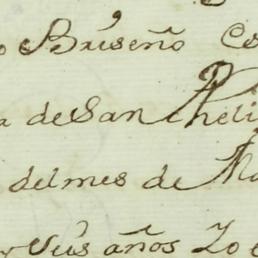 o Briseño Es
a de San Pheli
del mes de Ma
y seis años Lo